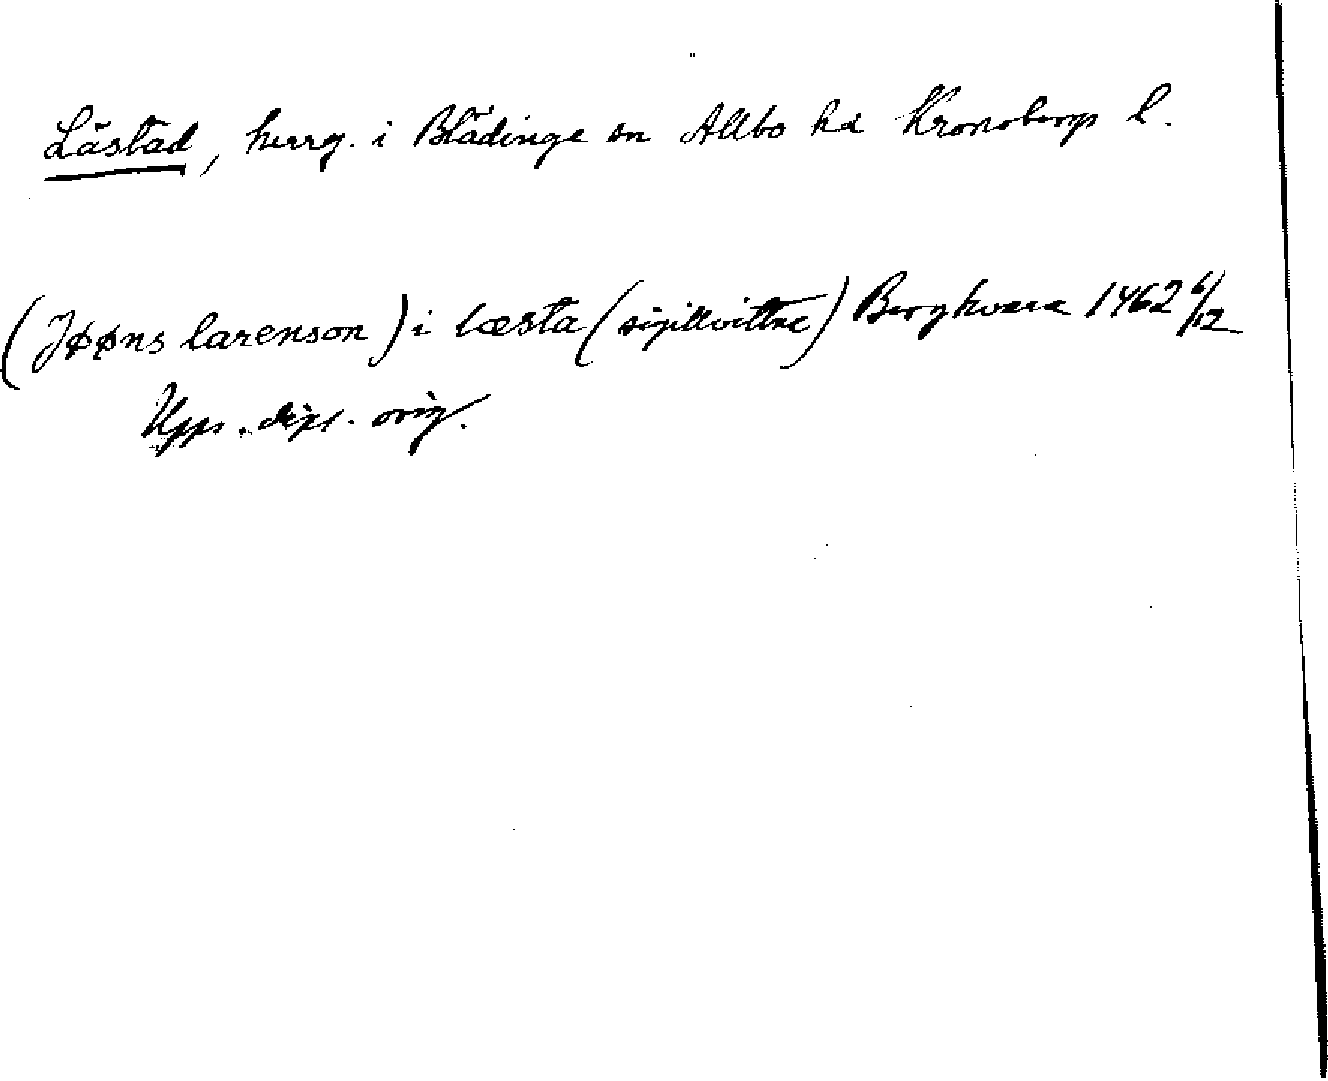 Lästad, herrg. i Blädinge sn Allbo hd Kronobergs l.
(Jøøns larenson) i læsta (sigillvittne) Bergkvara 1462 6/12
Upps. dipl. orig.